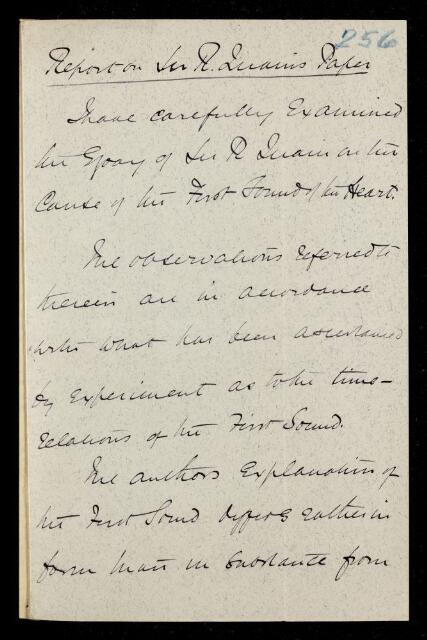 256
Report on Sir R. Quain's Paper
I have carefully Examined
the Essay of Sir R Quain on the
Cause of the First Sound of the Heart.
The observations referred to
therein are in accordance
with what has been ascertained
by Experiment as to the time-
relations of the First Sound.
The authors Explanation of
the First Sound differs rather in
form than in substance from